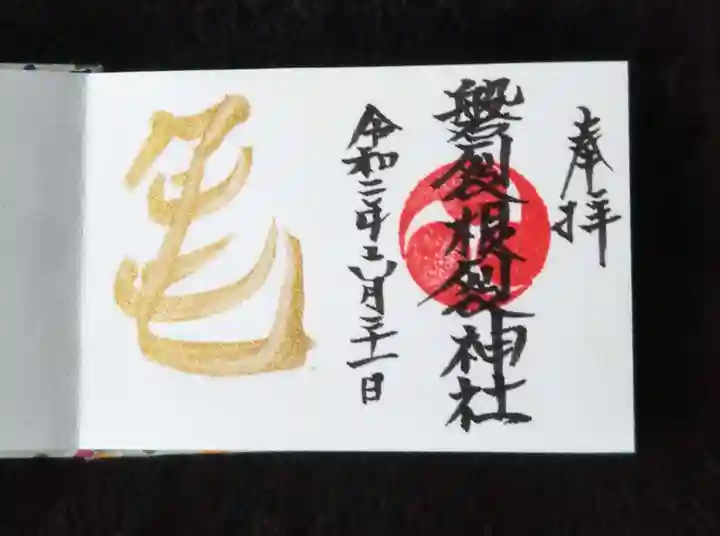 奉拝
磐裂根裂神社
令和二年五月三十一日